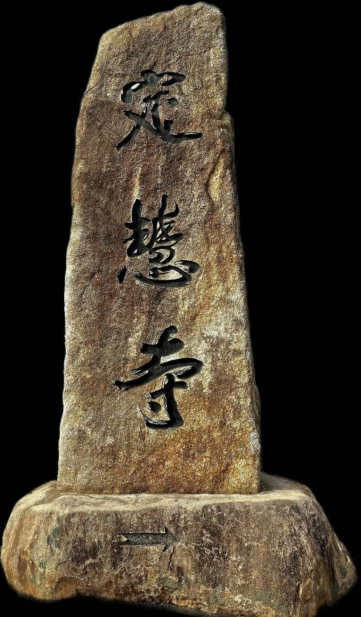 定慧寺
→